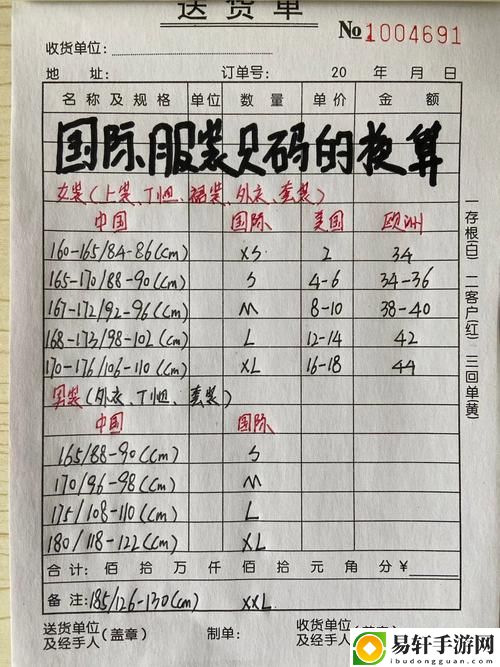 送货单
№1004691
收货单位:
地 址: 订单号: 20 年 月 日
名称及规格 单位 数量 单价 金额
国际服装尺码的换算
女装(上装、T恤、裙装、外衣、套装)
中国 国际 美国 欧洲
160-165/84-86(cm) XS 2 34
165-170/88-90(cm) S 4-6 34-36
167-172/92-96(cm) M 8-10 38-40
168-173/98-102(cm) L 12-14 42
170-176/106-110(cm) XL 16-18 44
男装(外衣、T恤、套装)
中国 国际
165/88-90(cm) S
170/96-98(cm) M
175/108-110(cm) L
180/118-122(cm) XL
合计: 佰 拾 万 仟 佰 拾 元 角 分 ¥
备注: 185/126-130(cm) XXL
送货单位及经手人(盖章) 制单: 收货单位及经手人
一存根(白) 二客户(红) 三回单(黄)
易轩手游网
ibudongguan.com